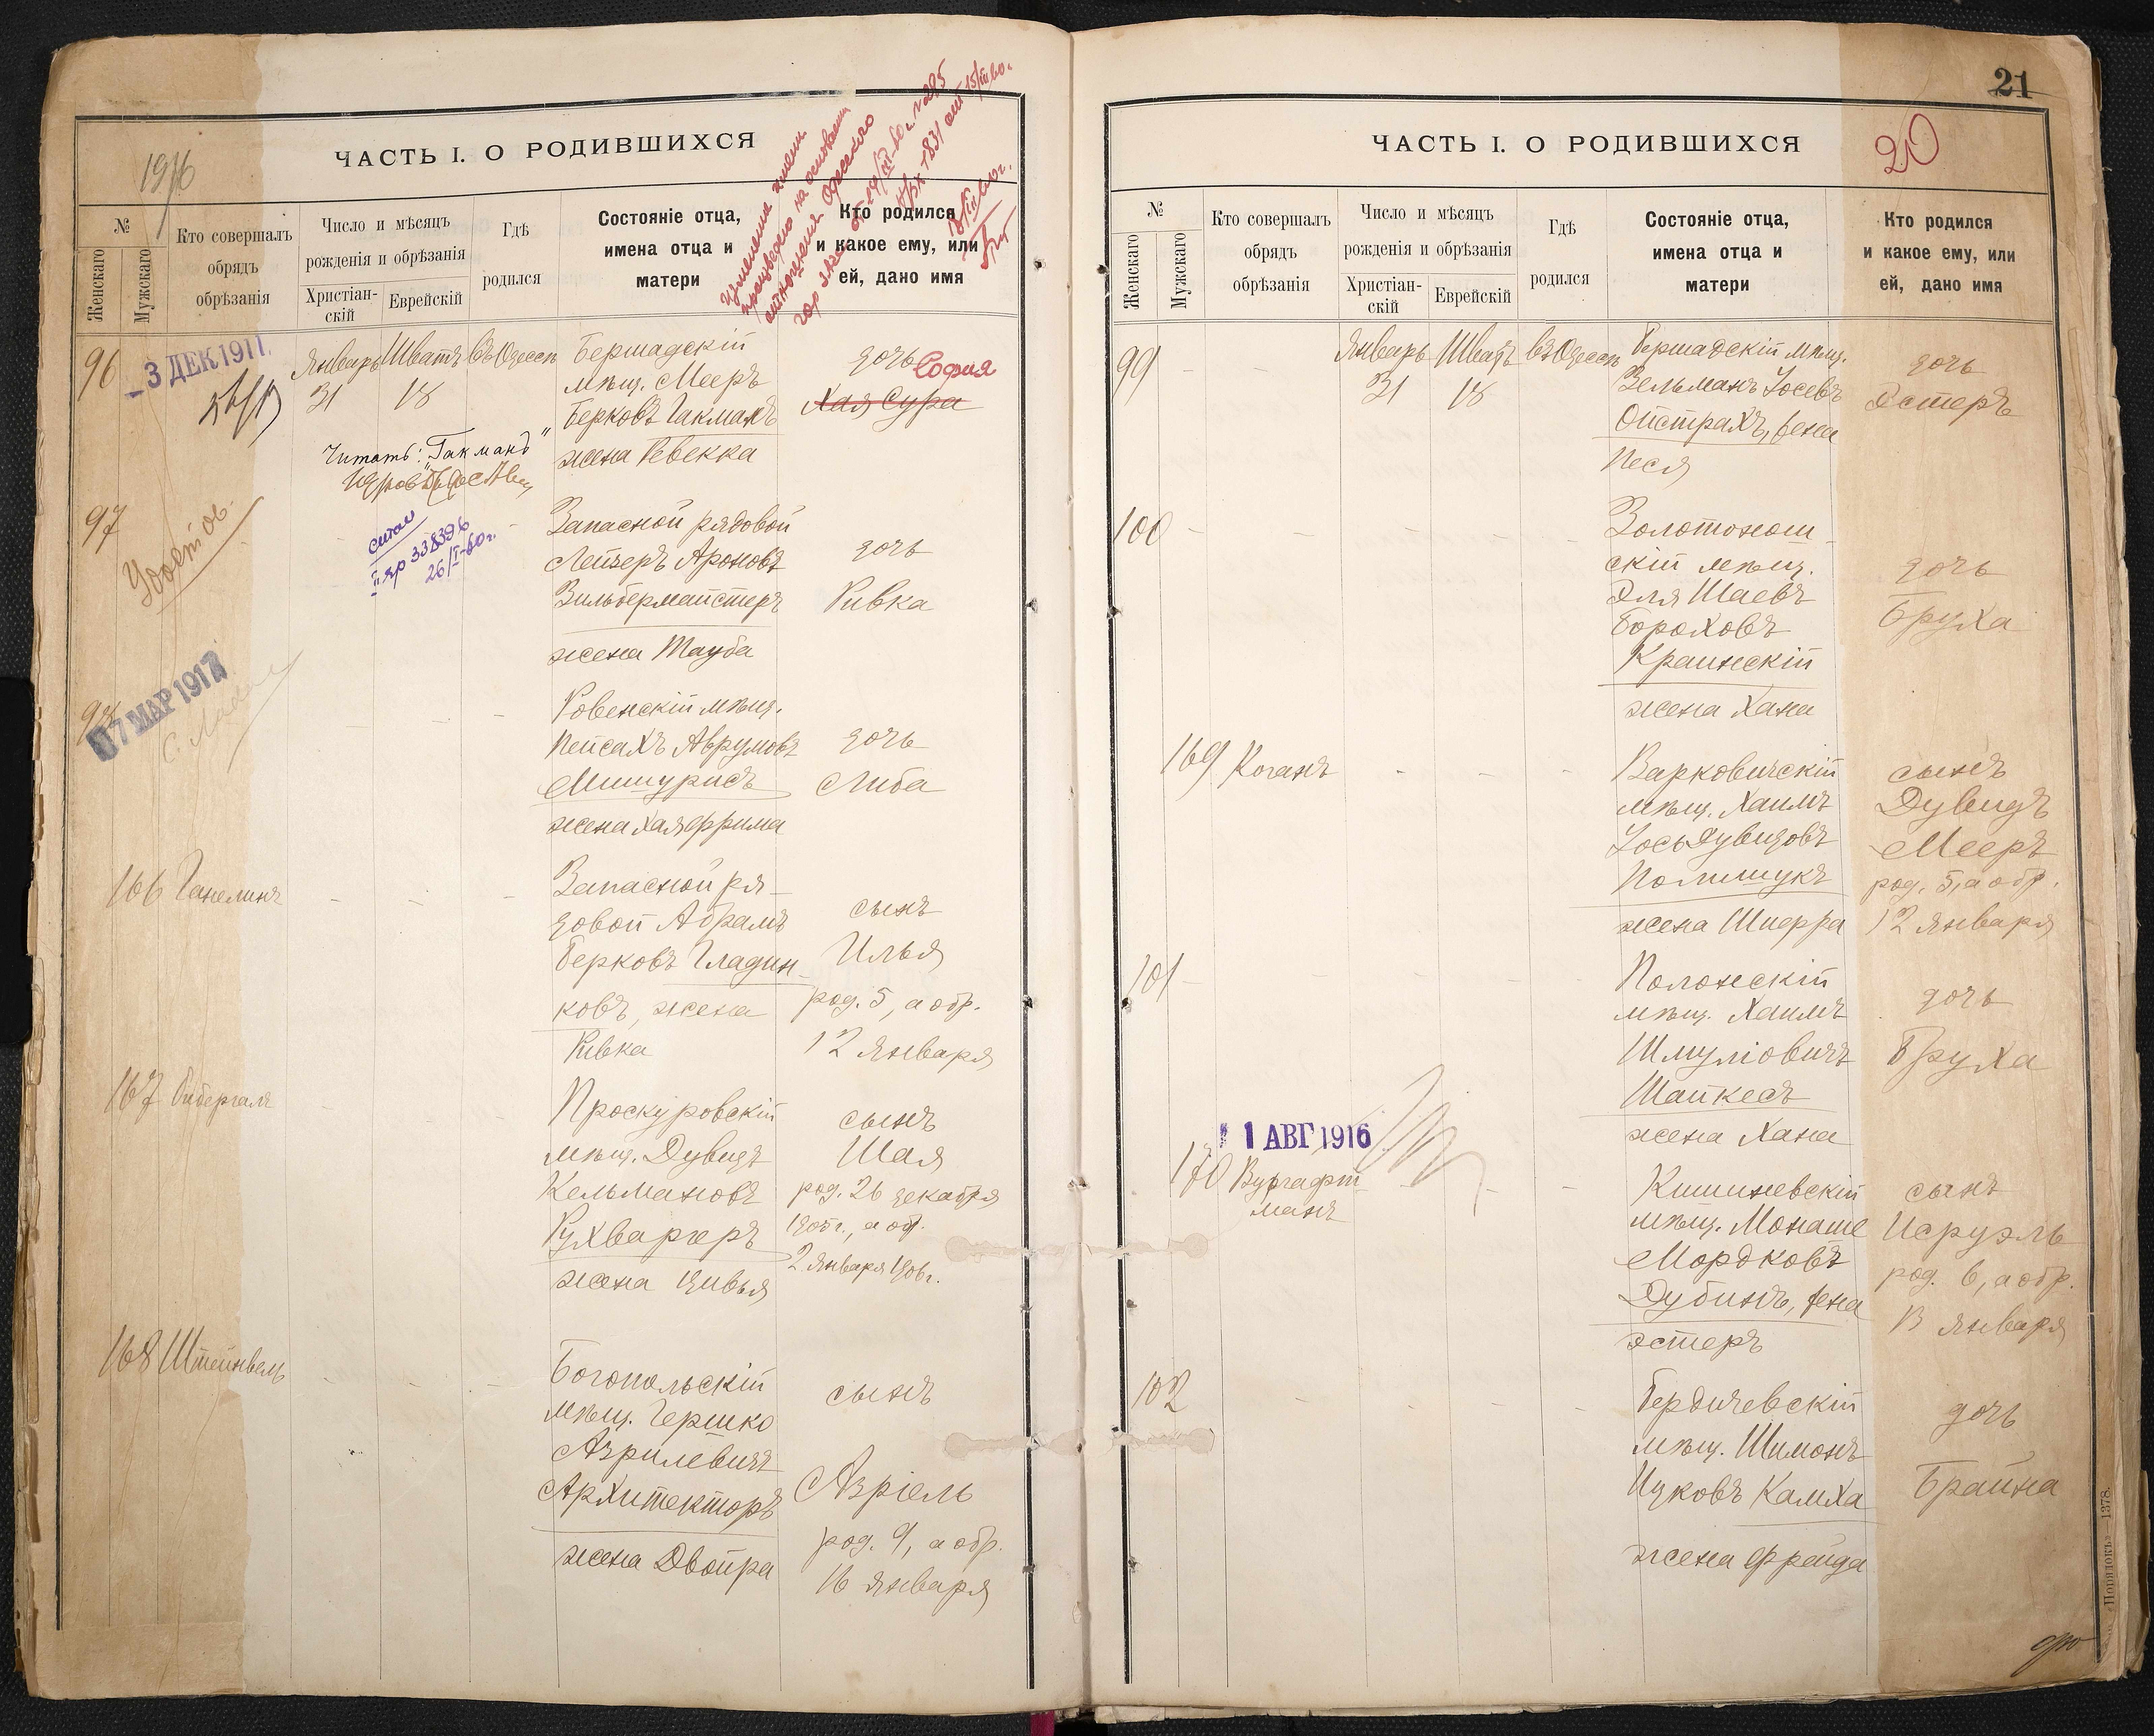 ЧАСТЬ I. О РОДИВШИХСЯ
1916
№
Женскаго
Мужскаго
Кто совершалъ
обрядъ
обрѣзанія
Число и мѣсяцъ
рожденія и обрѣзанія
Христіан-
скій
Еврейскій
Гдѣ
родился
Состояніе отца,
имена отца и
матери
Кто родился
и какое ему, или
ей, дано имя
Изменение имени
произведено на основании
отношения Одесского
гор
96
3 ДЕК 1917
Январь Шватъ въ Одессѣ
31 18
Бершадскій
мѣщ. Мееръ
Берковъ Гакманъ
жена Ревекка
дочь София
Хая Сура
Читать: "Гакманъ"
97
II яр 338396
26/I-60г.
Запасной рядовой
Лейзеръ Ароновъ
Зильбермайстеръ
жена Тауба
дочь
Ривка
98
07 МАР 1917
Ровенскій мѣщ.
Пейсахъ Аврумовъ
Мишурисъ
жена Хая Фрима
дочь
Либа
166 Ганелинъ
Запасной ря-
довой Абрамъ
Берковъ Гладин-
ковъ, жена
Ривка
сынъ
Илья
род. 5, а обр.
12 января
167 Гибергалъ
Проскуровскій
мѣщ. Дувидъ
Кельмановъ
Кухваргеръ
жена Цивья
сынъ
Шая
род. 26 декабря
1905г., а обр.
2 января 1906г.
168 Штейнвель
Богопольскій
мѣщ. Гершко
Азрилевичъ
Архитекторъ
жена Двойра
сынъ
Азріель
род. 9, а обр.
16 января
21
20
ЧАСТЬ I. О РОДИВШИХСЯ
№
Женскаго
Мужскаго
Кто совершалъ
обрядъ
обрѣзанія
Число и мѣсяцъ
рожденія и обрѣзанія
Христіан-
скій
Еврейскій
Гдѣ
родился
Состояніе отца,
имена отца и
матери
Кто родился
и какое ему, или
ей, дано имя
99
Январь Шватъ въ Одессѣ
31 18
Бершадскій мѣщ.
Зельманъ Іосевъ
Ойстрахъ, жена
Песя
дочь
Эстеръ
100
Золотонош-
скій мѣщ.
Эля Шаевъ
Бороховъ
Краинскій
жена Хана
дочь
Бруха
169 Коганъ
Варковичскій
мѣщ. Хаимъ
Іось Дувидовъ
Полищукъ
жена Шифра
сынъ
Дувидъ
Мееръ
род. 5, а обр.
12 января
101
Полонскій
мѣщ. Хаимъ
Шмуліовичъ
Шапкесъ
жена Хана
дочь
Бруха
1 АВГ 1916
170 Вургафт-
манъ
Кишиневскій
мѣщ. Монаше
Мордковъ
Дубинъ, жена
Эстеръ
сынъ
Исруэль
род. 6, а обр.
13 января
102
Бердичевскій
мѣщ. Шимонъ
Ицковъ Камха
жена Фрейда
дочь
Брайна
«Порядокъ» 1378.